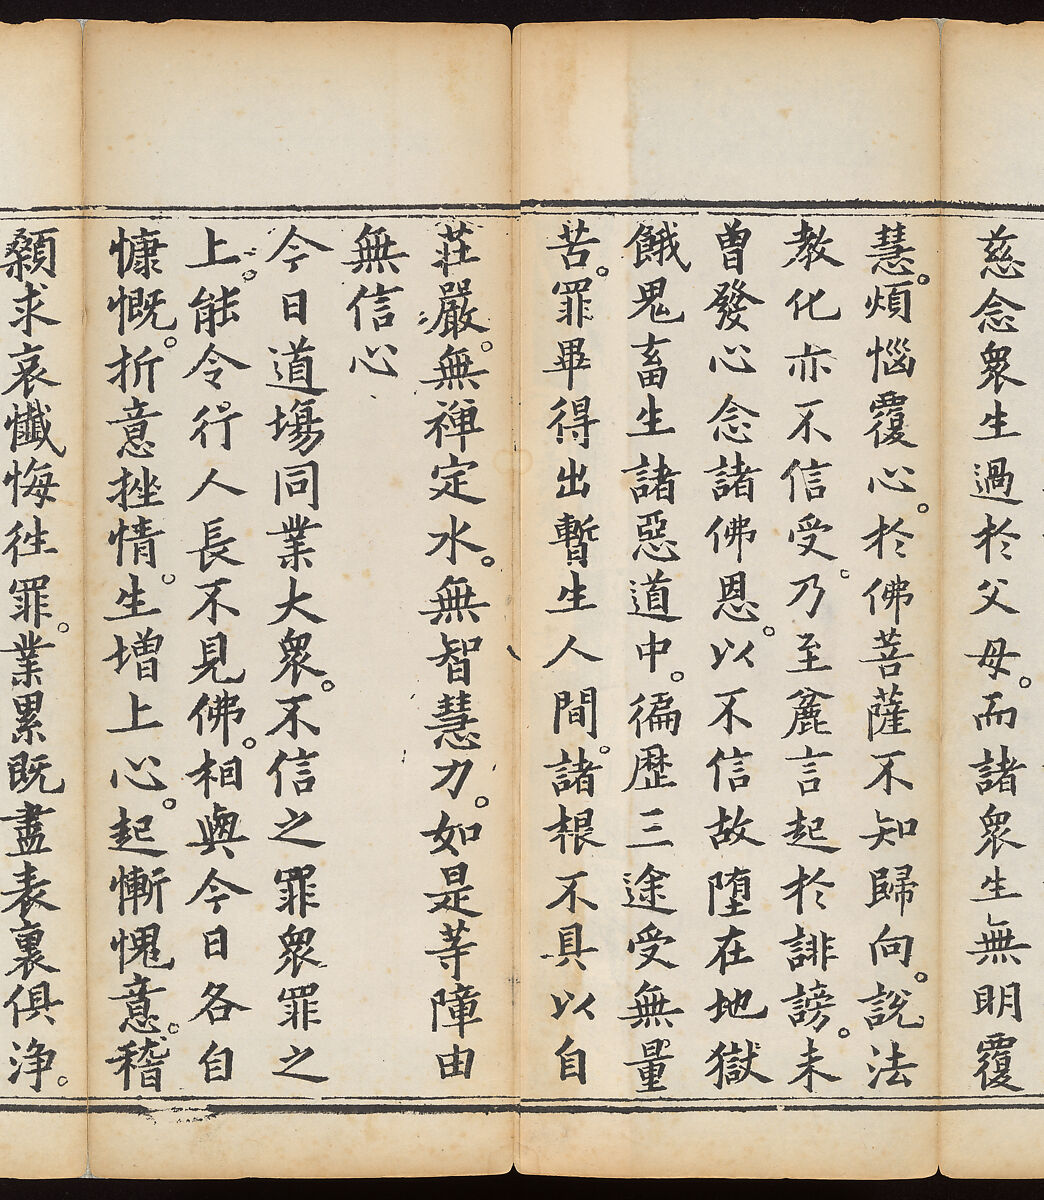 慈念衆生過於父母。而諸衆生無明覆
慧。煩惱覆心。於佛菩薩不知歸向。說法
教化亦不信受。乃至麄言起於誹謗。未
曾發心念諸佛恩。以不信故堕在地獄
餓鬼畜生諸惡道中。徧歷三途受無量
苦。罪畢得出暫生人間。諸根不具以自
莊嚴。無禅定水。無智慧力。如是等障由
無信心
今日道塲同業大衆。不信之罪衆罪之
上。能令行人長不見佛。相與今日各自
慷慨。折意挫情。生增上心。起慚愧意。稽
顙求哀懺悔徃罪。業累既盡表裏俱淨。